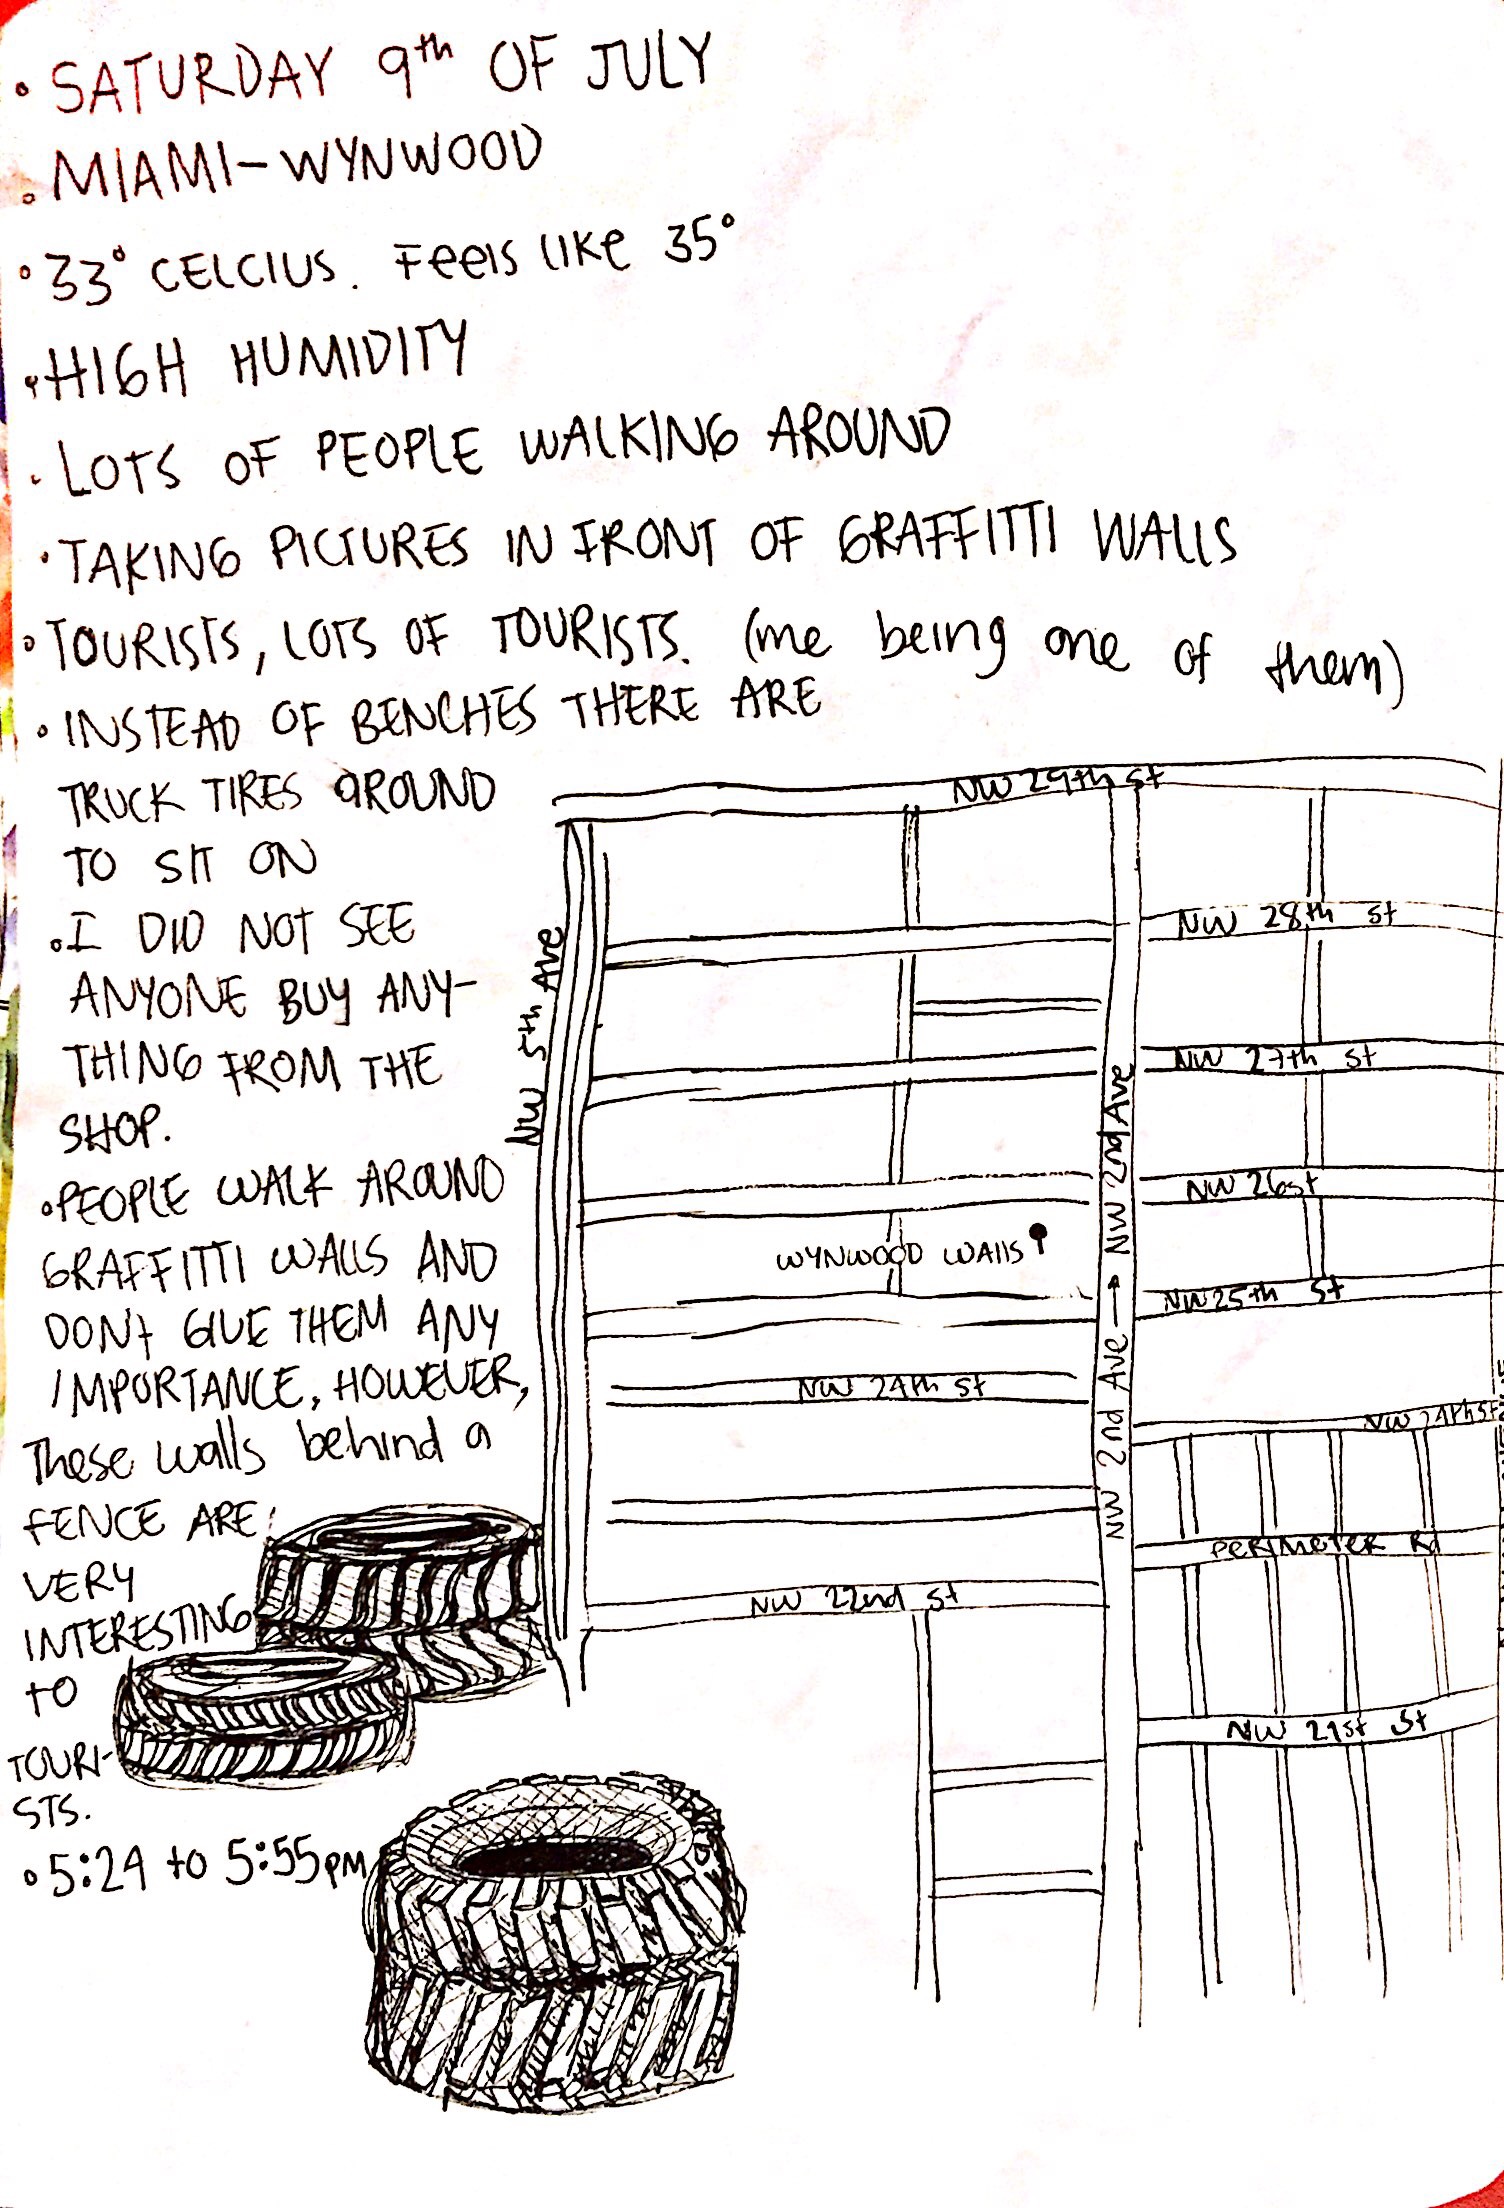 • SATURDAY 9th OF JULY
• MIAMI-WYNWOOD
• 33° CELCIUS. Feels like 35°
• HIGH HUMIDITY
• LOTS OF PEOPLE WALKING AROUND
• TAKING PICTURES IN FRONT OF GRAFFITTI WALLS
• TOURISTS, LOTS OF TOURISTS. (me being one of them)
• INSTEAD OF BENCHES THERE ARE
TRUCK TIRES AROUND
TO SIT ON
• I DID NOT SEE
ANYONE BUY ANY-
THING FROM THE
SHOP.
• PEOPLE WALK AROUND
GRAFFITTI WALLS AND
DON't GIVE THEM ANY
IMPORTANCE, HOWEVER,
These walls behind a
FENCE ARE
VERY
INTERESTING
TO
TOURI-
STS.
• 5:24 to 5:55PM
NW 29th st
NW 28th st
NW 5th Ave
NW 27th st
NW 2nd Ave → NW 2nd Ave
NW 26st
WYNWOOD WAlls
NW 25th st
NW 24th st
NW 24th st
PERIMETER Rd
NW 22nd st
NW 21st st